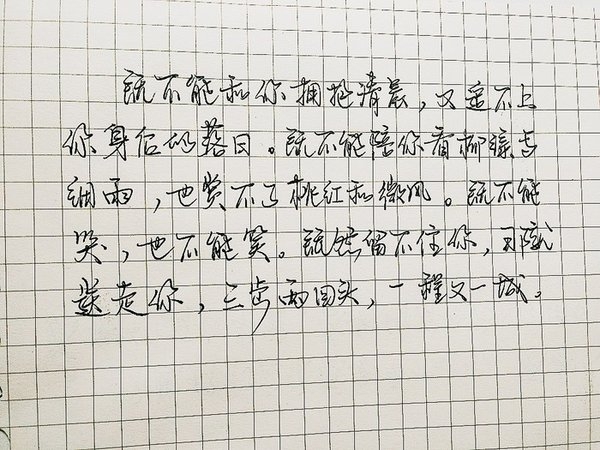 既不能和你拥抱清晨，又追不上
你身后的落日。既不能陪你看柳绿与
细雨，也赏不了桃红和微风。既不能
哭，也不能笑。既然留不住你，那就
送走你，三步两回头，一程又一城。